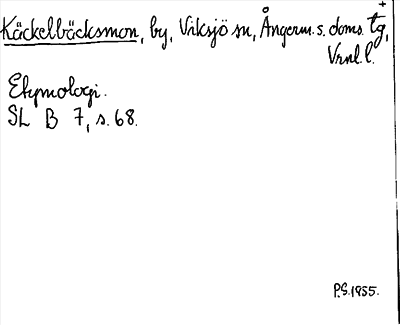 Käckelbäcksmon, by, Viksjö sn, Ångerm. s. doms. tg,
Vrnl. l.
Etymologi.
SL B 7, s. 68.
P.S. 1955.